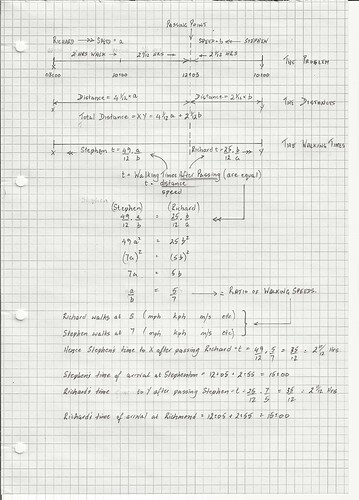 PASSING POINT
RICHARD →→ SPEED = a
SPEED = b ←← STEPHEN
2 HRS WALK
2 1/12 HRS
2 1/12 HRS
THE PROBLEM
X
Y
08:00
10:00
12:05
10:00
Distance = 4 1/12 × a
Distance = 2 1/12 × b
THE DISTANCES
Total Distance = XY = 4 1/12 a + 2 1/12 b
Stephen t = 49/12 . a/b
Richard t = 25/12 . b/a
THE WALKING TIMES
X
Y
t = Walking Times After Passing (are equal)
t = distance/speed
(Stephen) (Richard)
49/12 . a/b = 25/12 . b/a
49a² = 25b²
(7a)² = (5b)²
7a = 5b
a/b = 5/7 → = RATIO OF WALKING SPEEDS.
Richard walks at 5 (mph kph m/s etc)
Stephen walks at 7 (mph kph m/s etc)
Hence Stephen's time to X after passing Richard = t = 49/12 . 5/7 = 35/12 = 2 11/12 Hrs
Stephen's time of arrival at Stephenton = 12:05 + 2:55 = 15:00
Richard's time to Y after passing Stephen = t = 25/12 . 7/5 = 35/12 = 2 11/12 Hrs
Richard's time of arrival at Richmond = 12:05 + 2:55 = 15:00